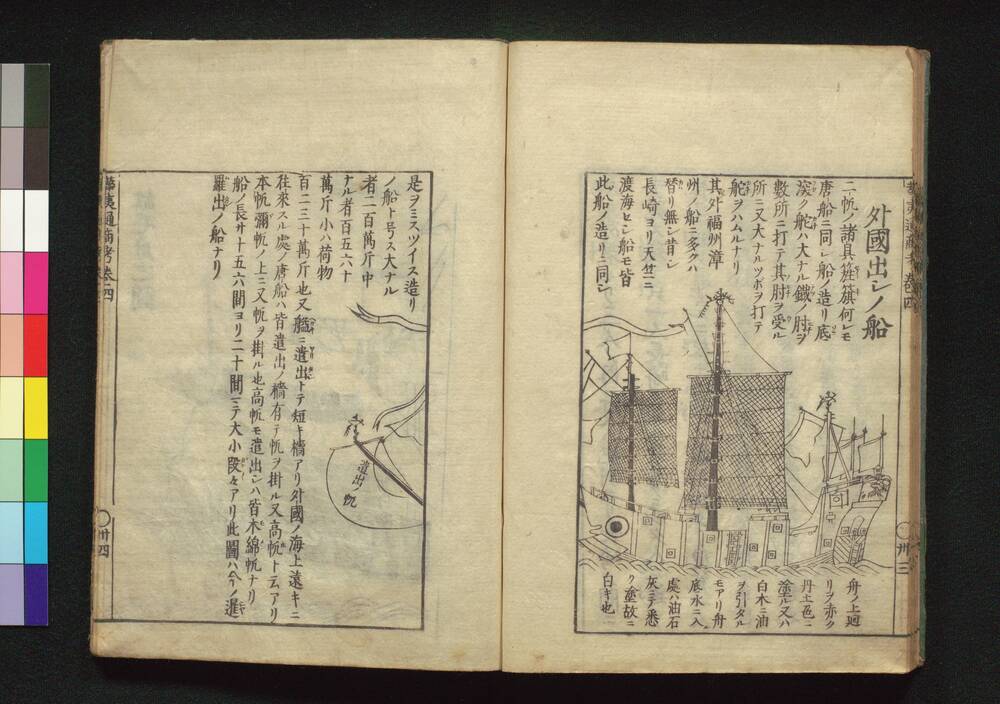 外國出シノ船
二帆ノ諸具旌籏何レモ
唐船ニ同シ船ノ造リ底
深ク舵ハ大ナル鐵ノ肘ヲ
數所ニ打テ其肘ヲ受ル
所ニ又大ナルツボヲ打テ
舵ヲハムルナリ
其外福州漳
州ノ船ニ多クハ
替リ無シ昔シ
長崎ヨリ天竺ニ
渡海セシ船モ皆
此船ノ造リニ同シ
舟ノ上廻
リヲ赤ク
丹土色ニ
塗ル又ハ
白木ニ油
ヲ引タル
モアリ舟
底水ニ入
處ハ油石
灰ニテ悉
ク塗故ニ
白キ也
卅三
是ヲミスツイス造リ
ノ船ト号ス大ナル
者二百萬斤中
ナル者百五六十
萬斤小ハ荷物
百二三十萬斤也又艫ニ遣出トテ短キ檣アリ外國ノ海上遠キニ
往來スル處ノ唐船ハ皆遣出ノ檣有テ帆ヲ掛ル又高帆ト云アリ
本帆彌帆ノ上ニ又帆ヲ掛ル也高帆モ遣出シハ皆木綿帆ナリ
船ノ長サ十五六間ヨリ二十間ニテ大小段々アリ此圖ハ今ノ暹
羅出ノ船ナリ
遣出帆
華夷通商考卷四
卅四